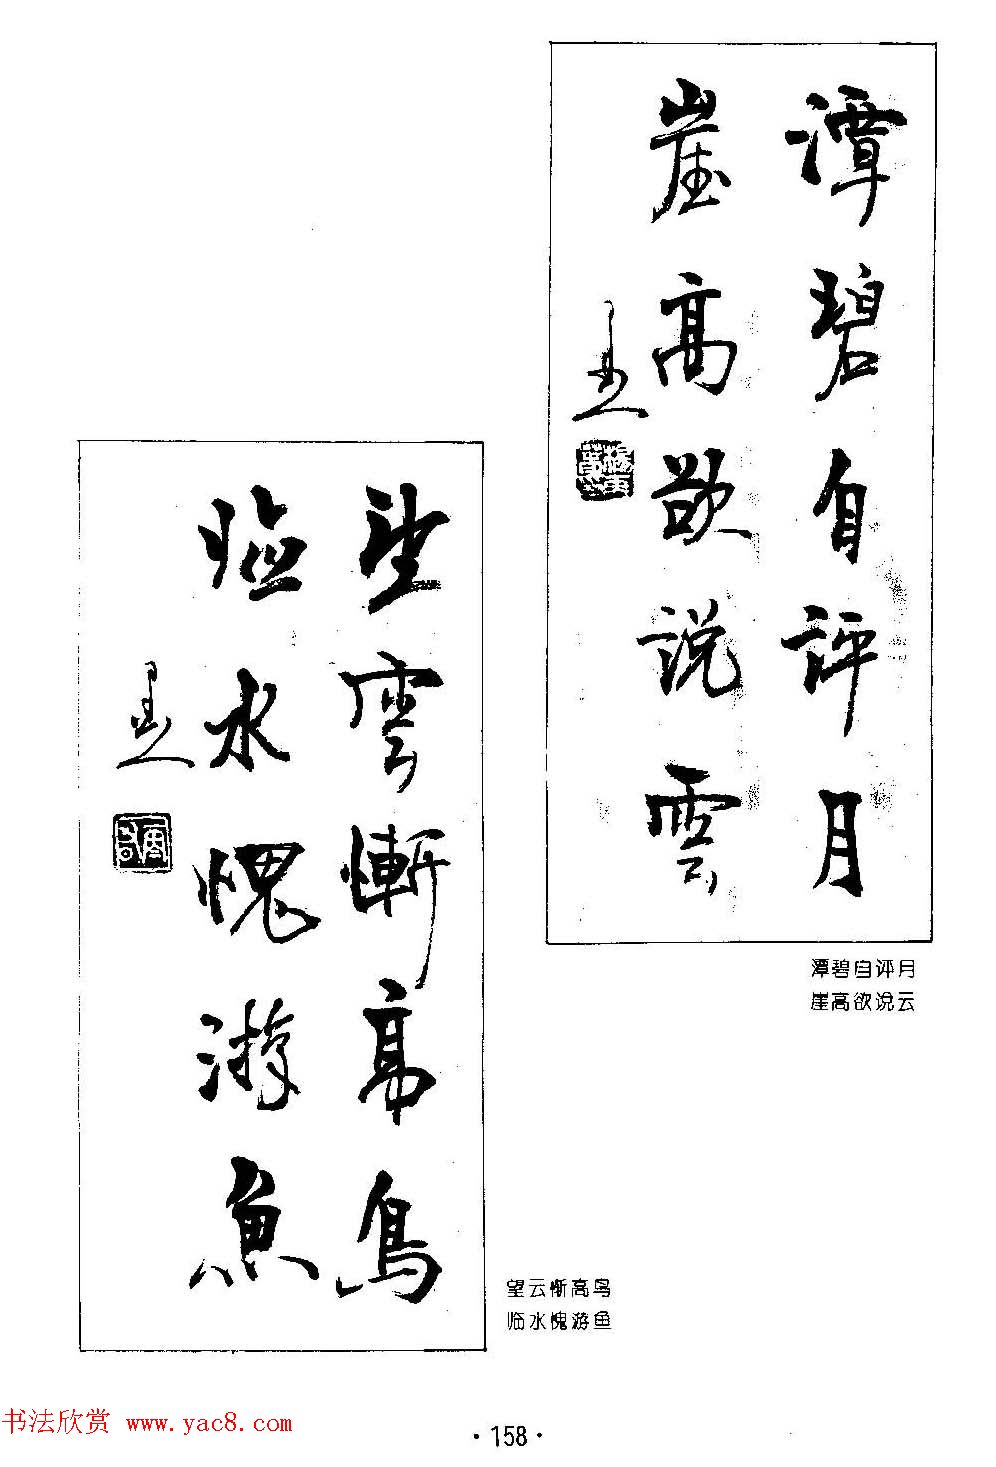 潭碧自評月
崖高欲説雲
潭碧自评月
崖高欲说云
望雲慚高鳥
臨水愧游魚
望云惭高鸟
临水愧游鱼
书法欣赏 www.yac8.com
·158·